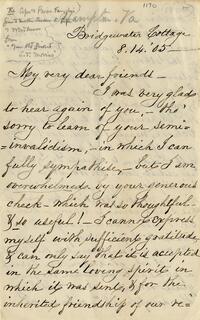 Hampton, Va
1170
Bridgewater Cottage
8.14.'05 —
My very dear friends —
I was very glad
to hear again of you, — tho'
sorry to learn of your semi-
invalidism, — in which I can
fully sympathise, — but I am
overwhelmed by your generous
check — which was so thoughtful
& so useful! — I cannot express
myself with sufficient gratitude,
& can only say that it is accepted
in the same loving spirit in
which it was sent, & for the
inherited friendship of our re-